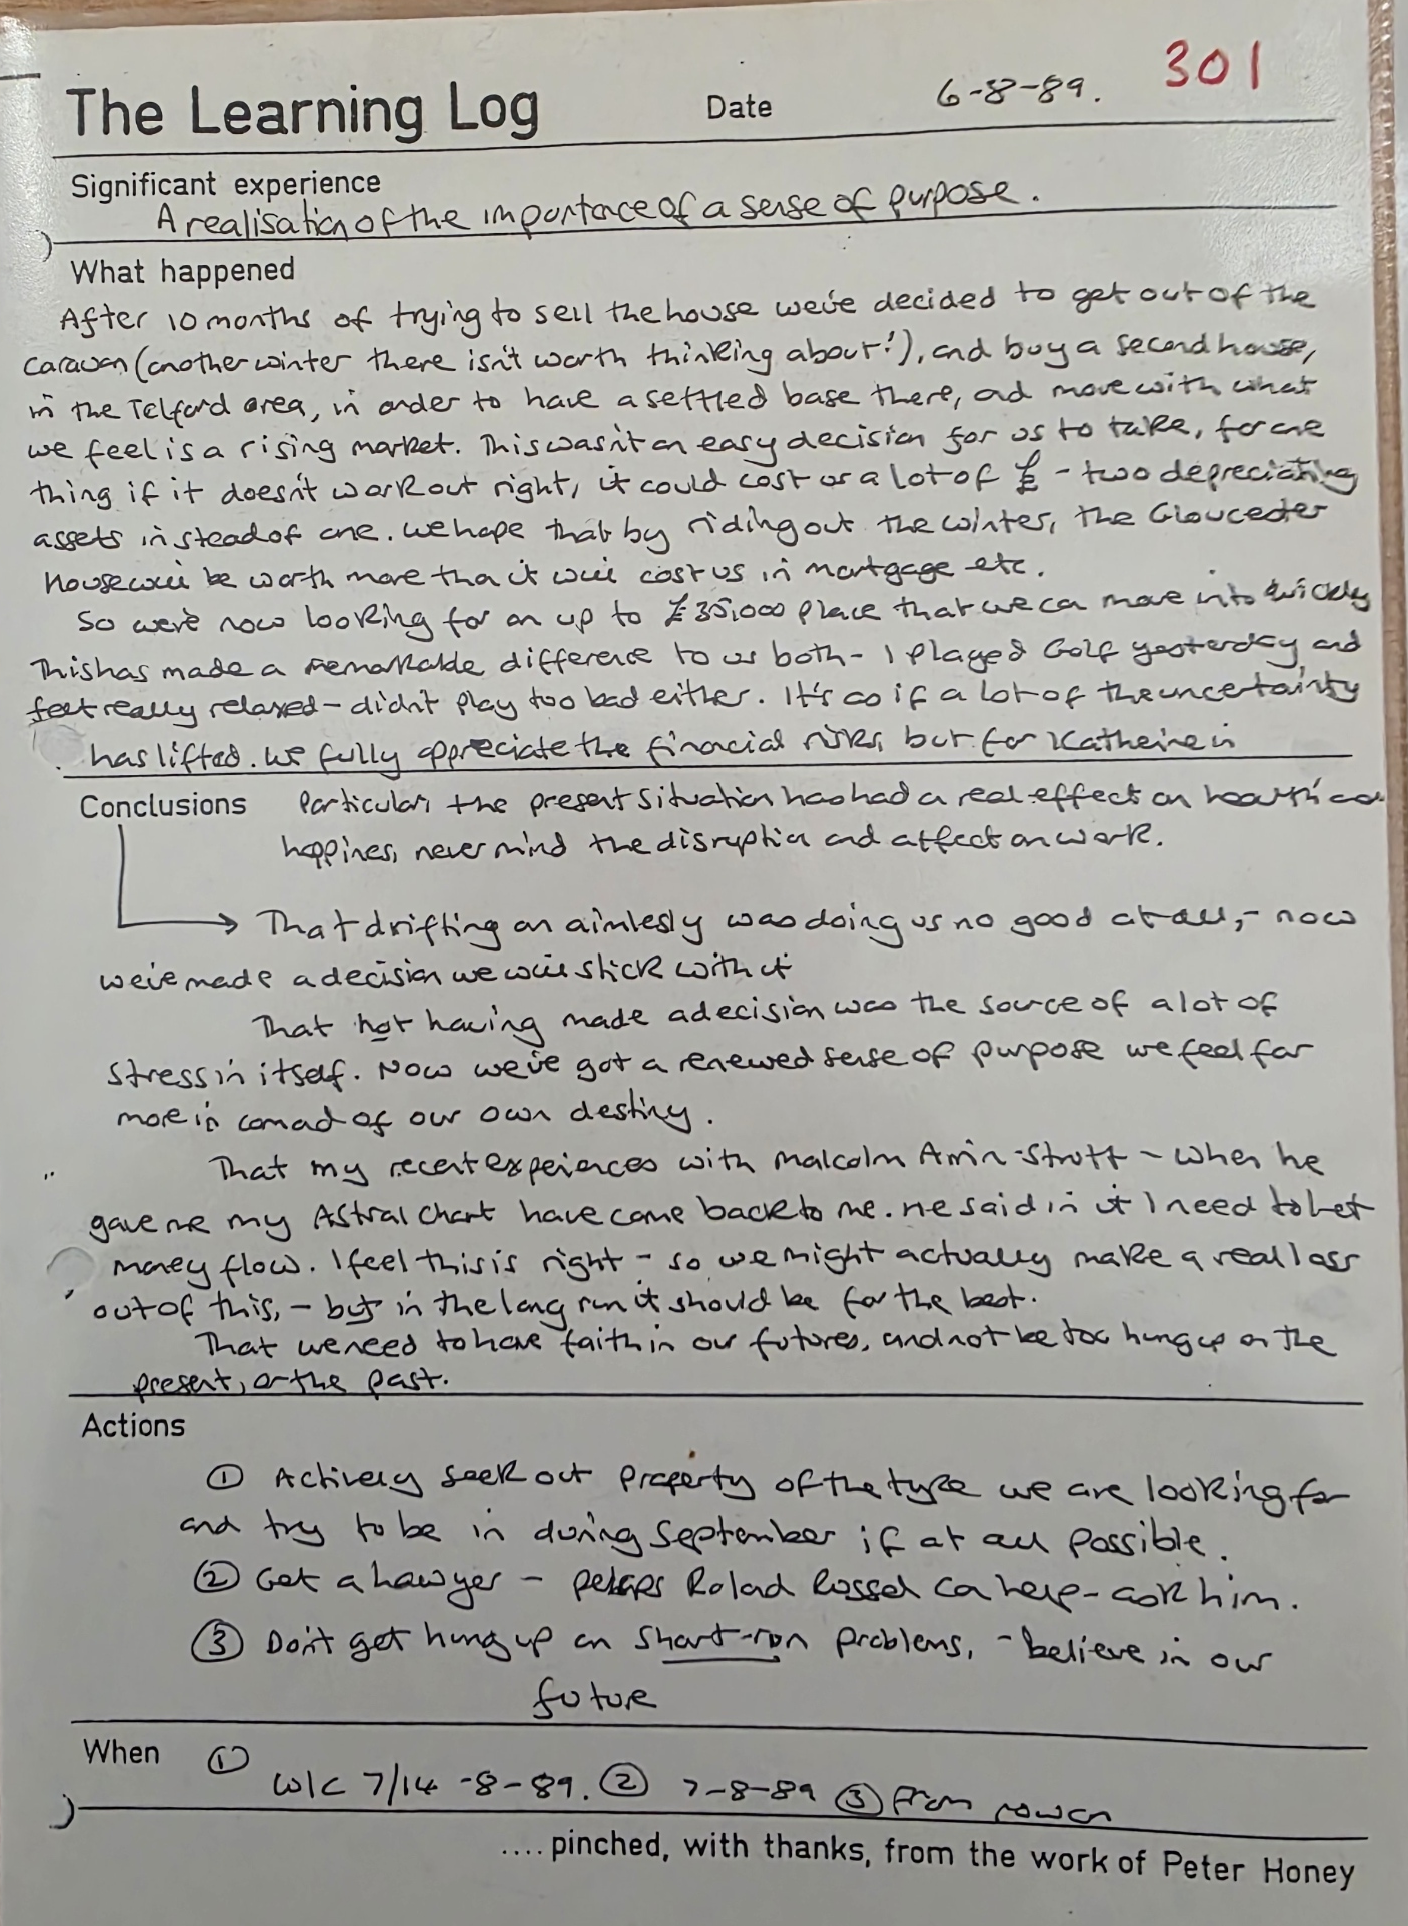 The Learning Log Date 6-8-89. 301
Significant experience
A realisation of the importance of a sense of purpose.
What happened
After 10 months of trying to sell the house we've decided to get out of the
caravan (another winter there isn't worth thinking about!), and buy a second house,
in the Telford area, in order to have a settled base there, and move with what
we feel is a rising market. This wasn't an easy decision for us to take, for one
thing if it doesn't work out right, it could cost us a lot of £ - two depreciating
assets instead of one. We hope that by riding out the winter, the Gloucester
House will be worth more than it will cost us in mortgage etc.
So we're now looking for an up to £35,000 place that we can move into quickly
This has made a remarkable difference to us both - I played Golf yesterday and
felt really relaxed - didn't play too bad either. It's as if a lot of the uncertainty
has lifted. We fully appreciate the financial risks, but for Katherine in
Conclusions particular, the present situation has had a real effect on health and
happiness, never mind the disruption and affect on work.
That drifting on aimlesly was doing us no good at all, - now
we've made a decision we will stick with it
That not having made a decision was the source of a lot of
stress in itself. Now we've got a renewed sense of purpose we feel far
more in comand of our own destiny.
That my recent experiences with Malcolm Amin-Strutt - when he
gave me my Astral chart have come back to me. He said in it I need to let
money flow. I feel this is right - so we might actually make a real loss
out of this, - but in the long run it should be for the best.
That we need to have faith in our futures, and not be too hung up on the
present, or the past.
Actions
① Actively seek out property of the type we are looking for
and try to be in during September if at all possible.
② Get a Lawyer - perhaps Roland Rossel can help - ask him.
③ Don't get hung up on short-run problems, - believe in our
future
When ① W/C 7/14 -8-89. ② 7-8-89 ③ From now on
.... pinched, with thanks, from the work of Peter Honey